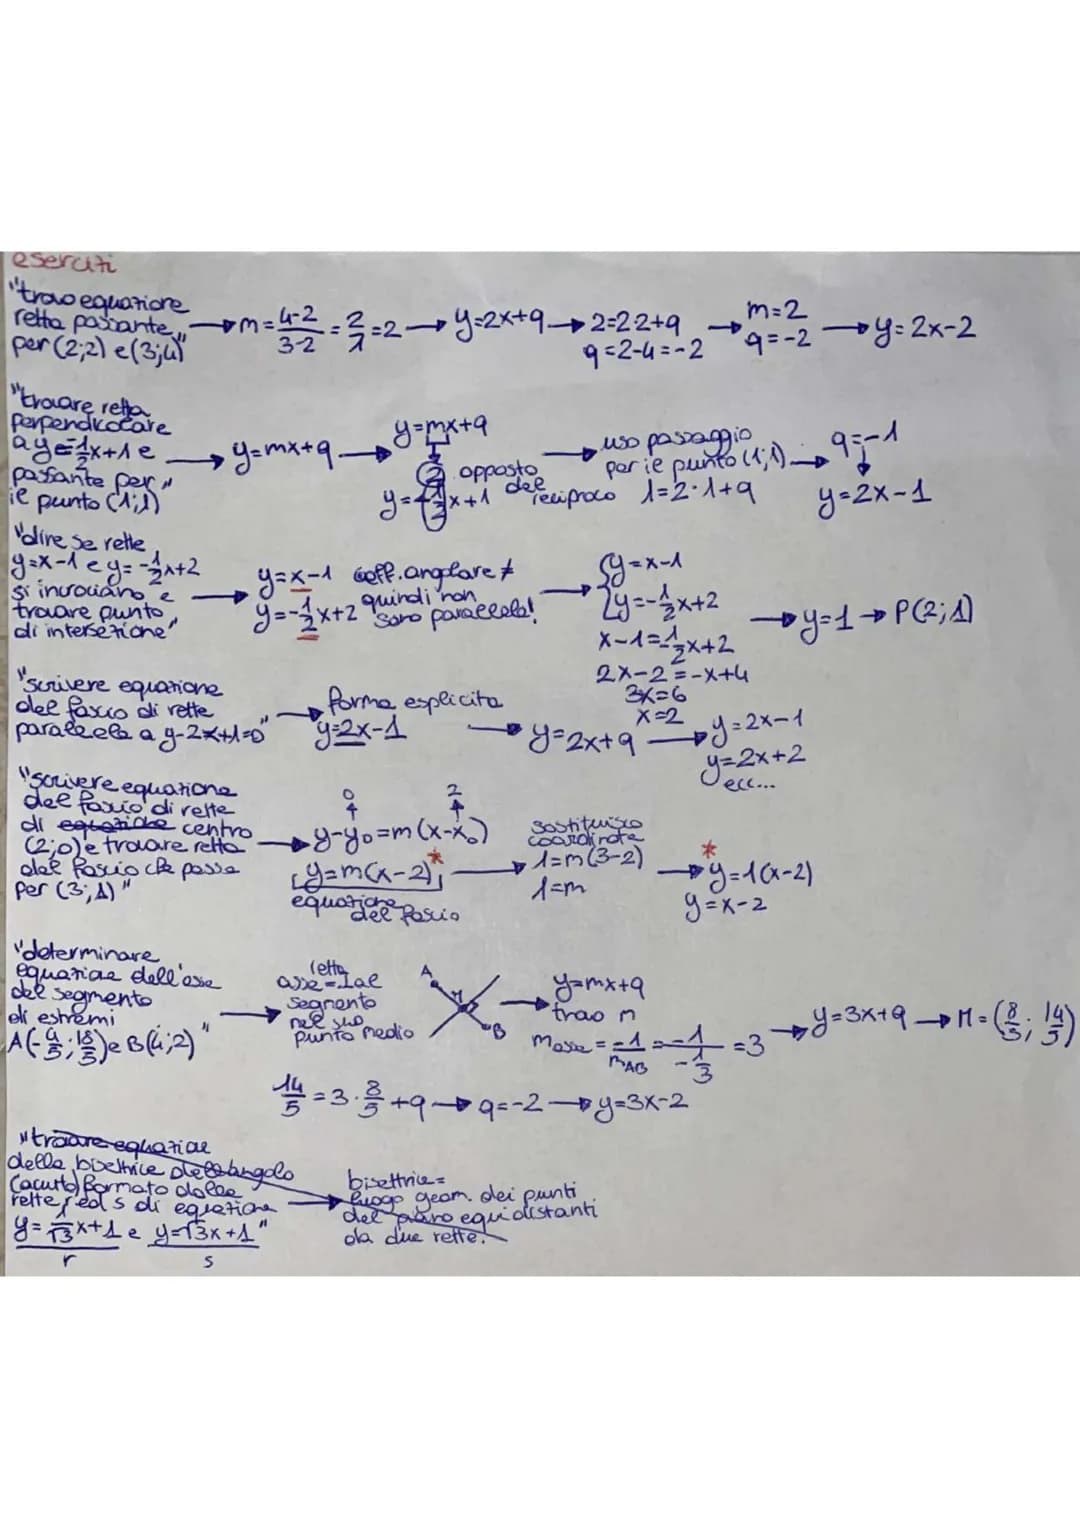 esercizi
"trovo equazione
retta passante
per (2;2) e (3;4)"
m=4-2/3-2=2/1=2
y=2x+q
2=2·2+q
q=2-4=-2
m=2
q=-2
y=2x-2
"trovare retta
perpendicolare
a y=-1/2x+1 e
passante per
il punto (1;1)"
y=mx+q
y=mx+q
2 opposto
del
reciproco
y=-1/2x+1
uso passaggio
per il punto (1;1)
1=2·1+q
q=-1
y=2x-1
"dire se rette
y=x-1 e y=-1/2x+2
si incrociano e
trovare punto
di intersezione"
y=x-1
y=-1/2x+2
coeff. angolare ≠
quindi non
sono parallele!
y=x-1
y=-1/2x+2
x-1=-1/2x+2
2x-2=-x+4
3x=6
x=2
y=1 → P(2;1)
"scrivere equazione
del fascio di rette
parallela a y-2x+1=0"
forma esplicita
y=2x-1
y=2x+q
y=2x-1
y=2x+2
ecc...
"scrivere equazione
del fascio di rette
di equazione centro
(2;0) e trovare retta
del fascio che passa
per (3;1)"
0 2
y-y0=m(x-x0)
y=m(x-2) *
equazione
del fascio
sostituisco
coordinate
1=m(3-2)
1=m
*
y=1(x-2)
y=x-2
"determinare
equazione dell'asse
del segmento
di estremi
A(-4/5;18/5) e B(4;2)"
retta
asse=⊥al
segmento
nel suo
punto medio
A
M
B
y=mx+q
trovo m
masse=-1/mAB=-1/-1/3=3
y=3x+q → M=(8/5;14/5)
14/5=3·8/5+q → q=-2 → y=3x-2
"trovare equazione
della bisettrice dell'angolo
(acuto) formato dalle
rette r ed s di equazione
y=1/√3x+1 e y=√3x+1"
r s
bisettrice=
luogo geom. dei punti
del piano equidistanti
da due rette.